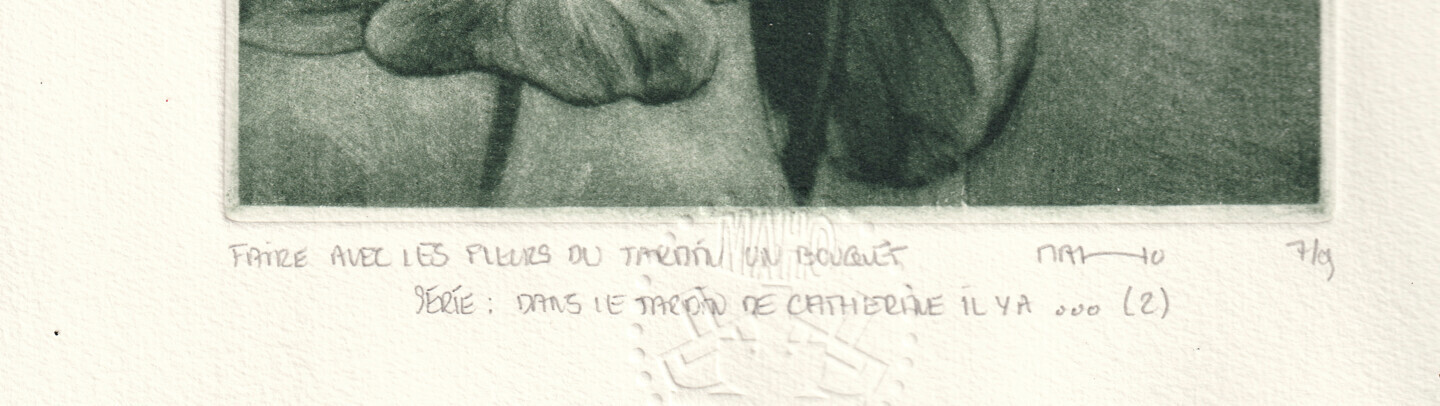 FAIRE AVEC LES FLEURS DU JARDIN UN BOUQUET MAHO 7/9
SÉRIE : DANS LE JARDIN DE CATHERINE IL Y A ... (2)
MAHO